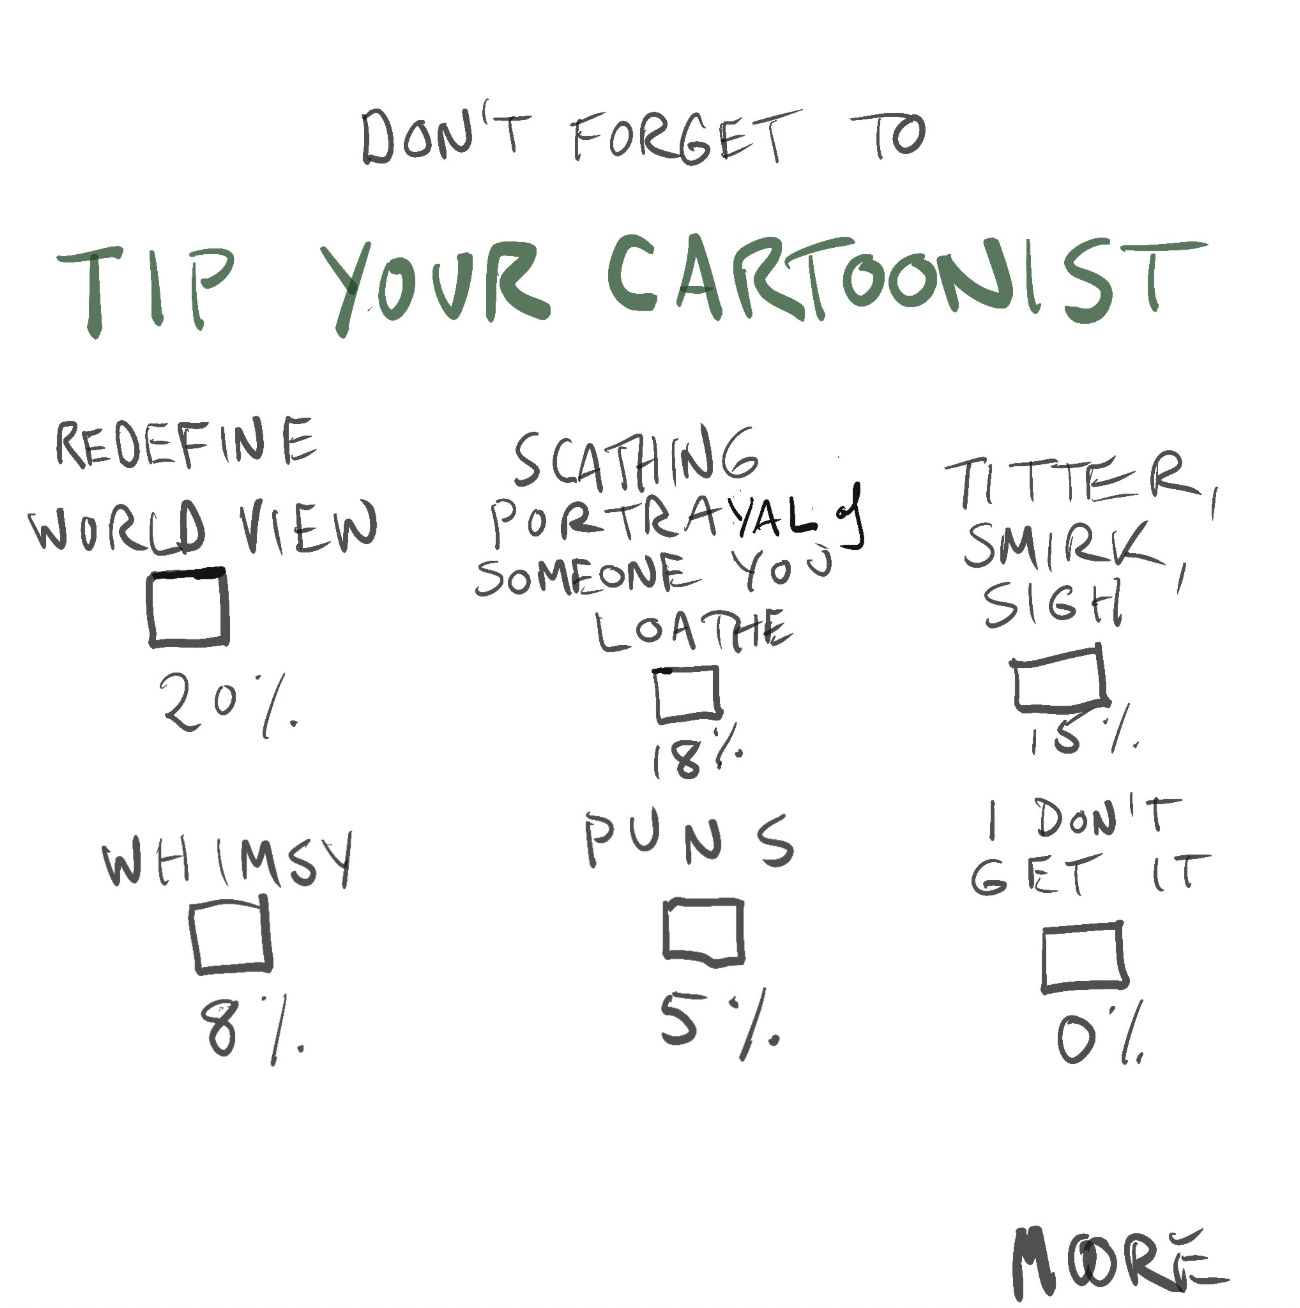 DON'T FORGET TO
TIP YOUR CARTOONIST
REDEFINE
WORLD VIEW
20%
SCATHING
PORTRAYAL of
SOMEONE YOU
LOATHE
18%
TITTER,
SMIRK,
SIGH
15%
WHIMSY
8%
PUNS
5%
I DON'T
GET IT
0%
MOORE